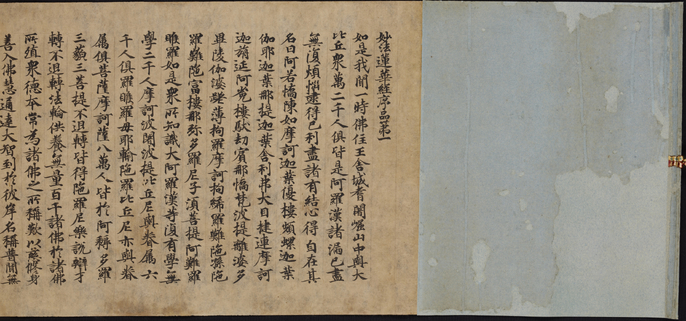 妙法蓮華經序品第一
如是我聞一時佛住王舍城耆闍崛山中與大
比丘衆萬二千人俱皆是阿羅漢諸漏已盡
無復煩惱逮得己利盡諸有結心得自在其
名曰阿若憍陳如摩訶迦葉優樓頻螺迦葉
伽耶迦葉那提迦葉舍利弗大目揵連摩訶
迦旃延阿㝹樓馱劫賓那憍梵波提離婆多
畢陵伽婆蹉薄拘羅摩訶拘絺羅難陁孫陁
羅難陁富樓那弥多羅尼子須菩提阿難羅
睺羅如是衆所知識大阿羅漢等復有學無
學二千人摩訶波闍波提比丘尼與眷属六
千人俱羅睺羅母耶輸陁羅比丘尼亦與眷
属俱菩薩摩訶薩八万人皆於阿耨多羅
三藐三菩提不退轉皆得陁羅尼樂說辯才
轉不退轉法輪供養無量百千諸佛於諸佛
所殖衆德本常為諸佛之所稱歎以慈修身
善入佛慧通達大智到於彼岸名稱普聞無